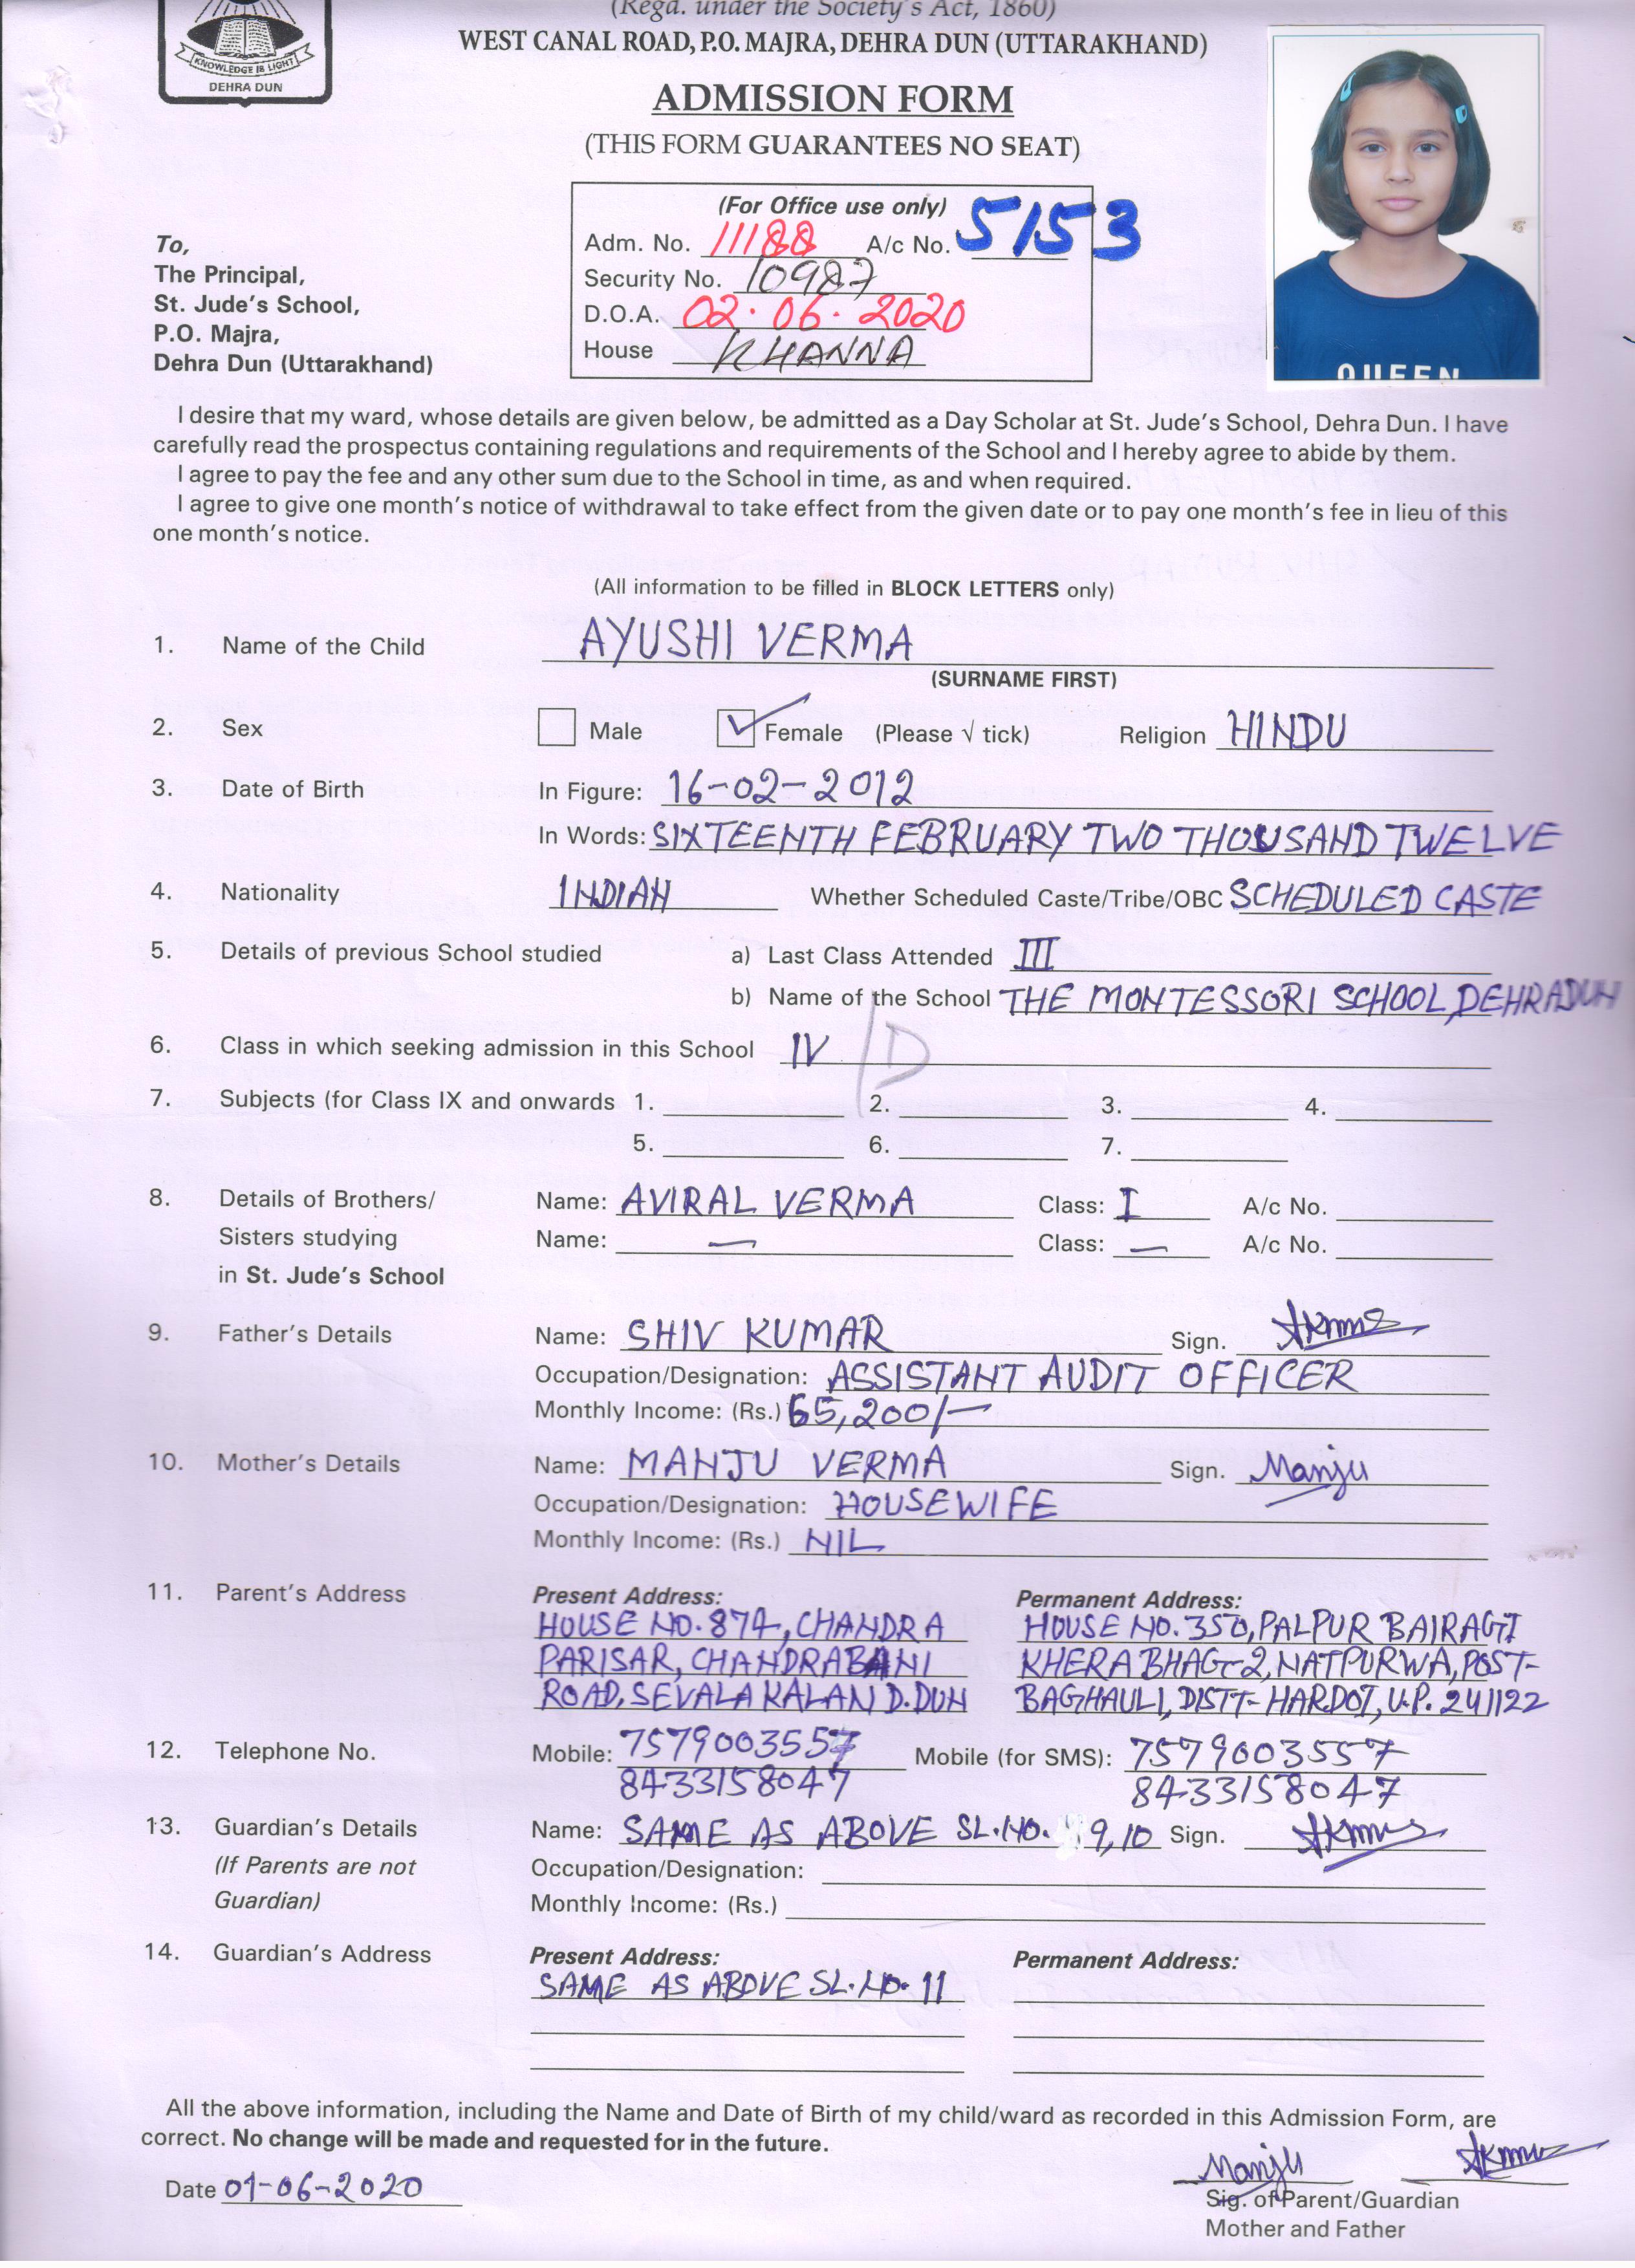 (Regd. under the Society's Act, 1860)
WEST CANAL ROAD, P.O. MAJRA, DEHRA DUN (UTTARAKHAND)
KNOWLEDGE IS LIGHT
DEHRA DUN
ADMISSION FORM
(THIS FORM GUARANTEES NO SEAT)
(For Office use only)
Adm. No. 11188 A/c No. 5153
Security No. 10987
D.O.A. 02.06.2020
House KHANNA
QUEEN
To,
The Principal,
St. Jude's School,
P.O. Majra,
Dehra Dun (Uttarakhand)
I desire that my ward, whose details are given below, be admitted as a Day Scholar at St. Jude's School, Dehra Dun. I have
carefully read the prospectus containing regulations and requirements of the School and I hereby agree to abide by them.
I agree to pay the fee and any other sum due to the School in time, as and when required.
I agree to give one month's notice of withdrawal to take effect from the given date or to pay one month's fee in lieu of this
one month's notice.
(All information to be filled in BLOCK LETTERS only)
1. Name of the Child AYUSHI VERMA
(SURNAME FIRST)
2. Sex Male Female (Please √ tick) Religion HINDU
3. Date of Birth In Figure: 16-02-2012
In Words: SIXTEENTH FEBRUARY TWO THOUSAND TWELVE
4. Nationality INDIAN Whether Scheduled Caste/Tribe/OBC SCHEDULED CASTE
5. Details of previous School studied a) Last Class Attended III
b) Name of the School THE MONTESSORI SCHOOL, DEHRADUN
6. Class in which seeking admission in this School IV /D
7. Subjects (for Class IX and onwards 1. 2. 3. 4.
5. 6. 7.
8. Details of Brothers/ Name: AVIRAL VERMA Class: I A/c No.
Sisters studying Name: — Class: — A/c No.
in St. Jude's School
9. Father's Details Name: SHIV KUMAR Sign.
Occupation/Designation: ASSISTANT AUDIT OFFICER
Monthly Income: (Rs.) 65,200/-
10. Mother's Details Name: MANJU VERMA Sign. Manju
Occupation/Designation: HOUSEWIFE
Monthly Income: (Rs.) NIL
11. Parent's Address Present Address: Permanent Address:
HOUSE NO. 874, CHANDRA HOUSE NO. 350, PALPUR BAIRAGI
PARISAR, CHANDRABANI KHERA BHAG-2, NATPURWA, POST-
ROAD, SEVALA KALAN D.DUN BAGHAULI, DISTT- HARDOI, U.P. 241122
12. Telephone No. Mobile: 7579003557 Mobile (for SMS): 7579003557
8433158047 8433158047
13. Guardian's Details Name: SAME AS ABOVE SL.NO. 9,10 Sign.
(If Parents are not Occupation/Designation:
Guardian) Monthly Income: (Rs.)
14. Guardian's Address Present Address: Permanent Address:
SAME AS ABOVE SL.NO. 11
All the above information, including the Name and Date of Birth of my child/ward as recorded in this Admission Form, are
correct. No change will be made and requested for in the future.
Manju
Date 01-06-2020
Sig. of Parent/Guardian
Mother and Father